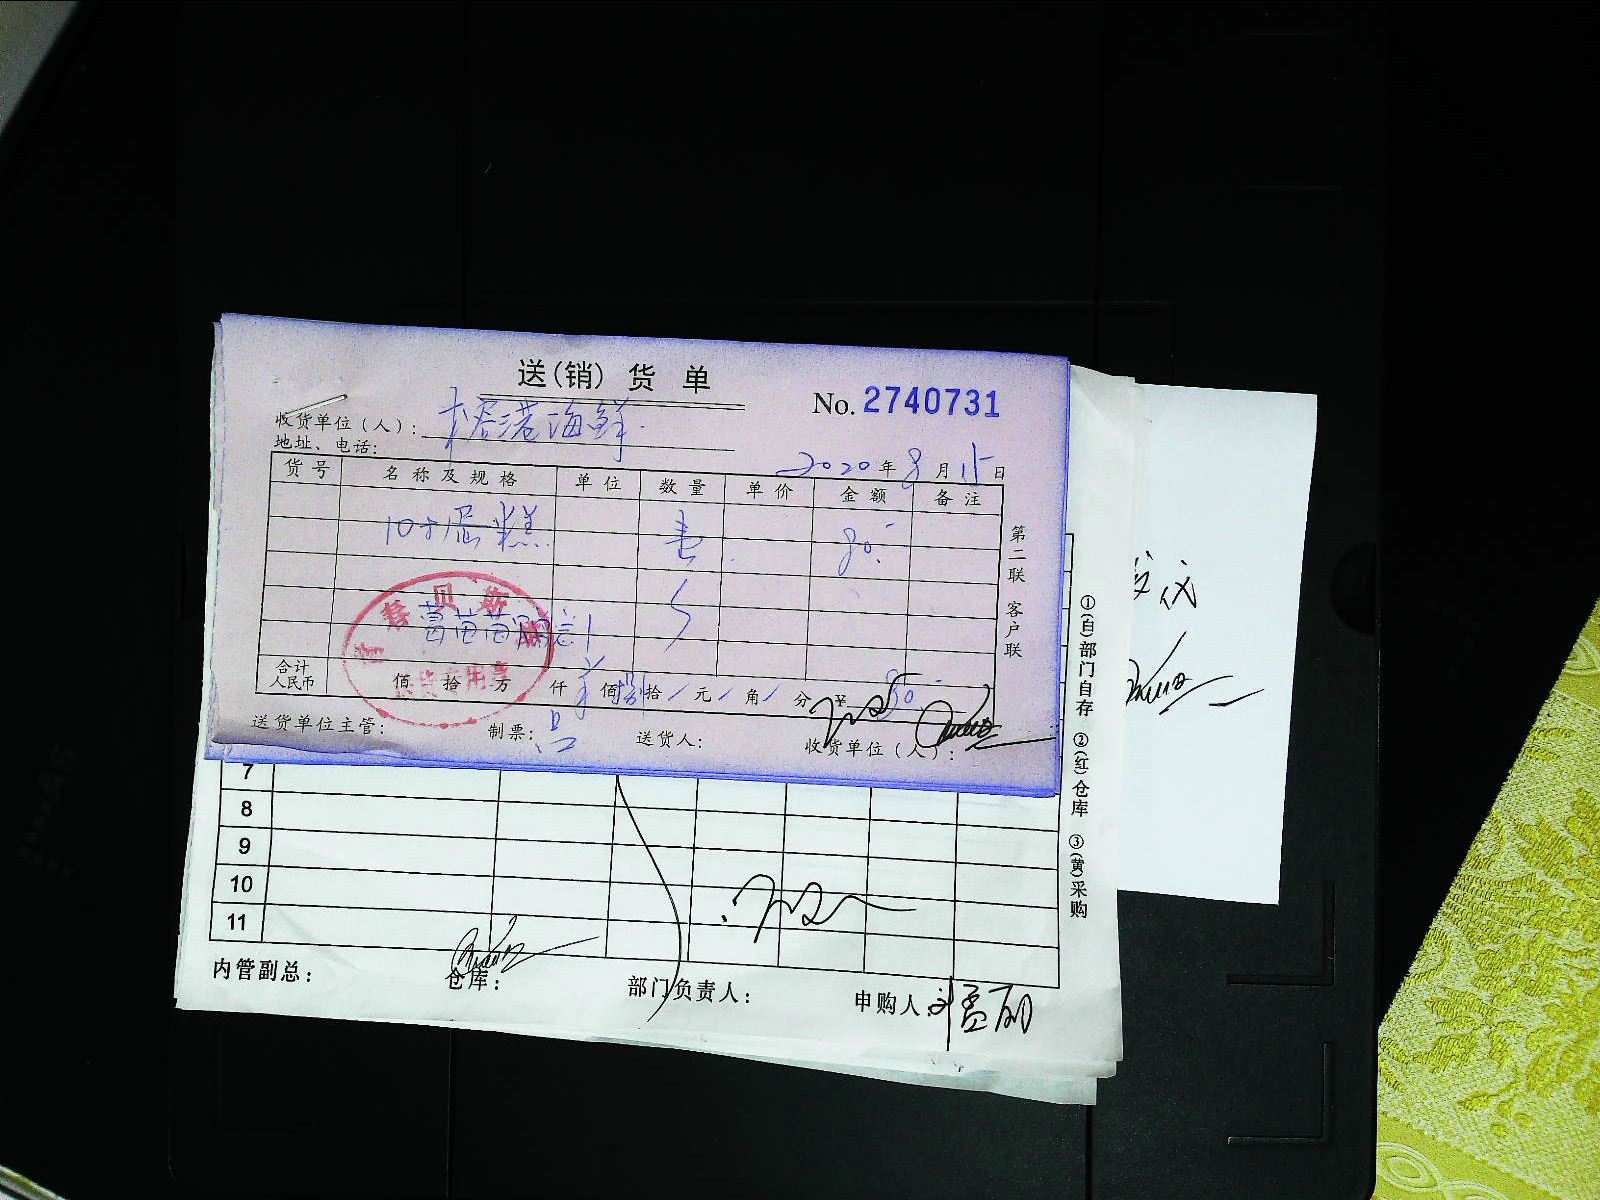 送(销)货单
No. 2740731
收货单位(人): 大香港海鲜
地址、电话:
2020年8月15日
货号 名称及规格 单位 数量 单价 金额 备注
10寸蛋糕 壹 80.
合计人民币 佰 拾 万 仟 佰 捌拾 元 角 分 ¥ 80.
送货单位主管: 制票: 吕 送货人: 收货单位(人):
第二联 客户联
7
8
9
10
11
内管副总: 仓库: 部门负责人: 申购人: 刘孟丽
①(白)部门自存 ②(红)仓库 ③(黄)采购